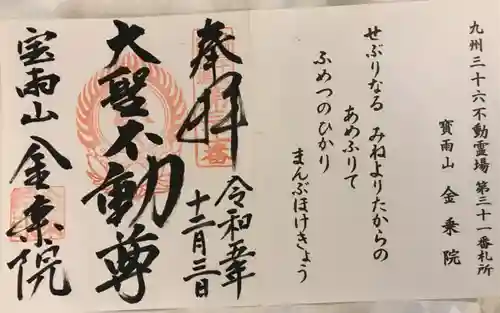 九州三十六不動霊場 第三十一番札所
寶雨山 金乗院
せぶりなる みねよりたからの
あめふりて
ふめつのひかり
まんぶほけきょう
奉拝
令和五年
十二月三日
大聖不動尊
宝雨山 金乗院